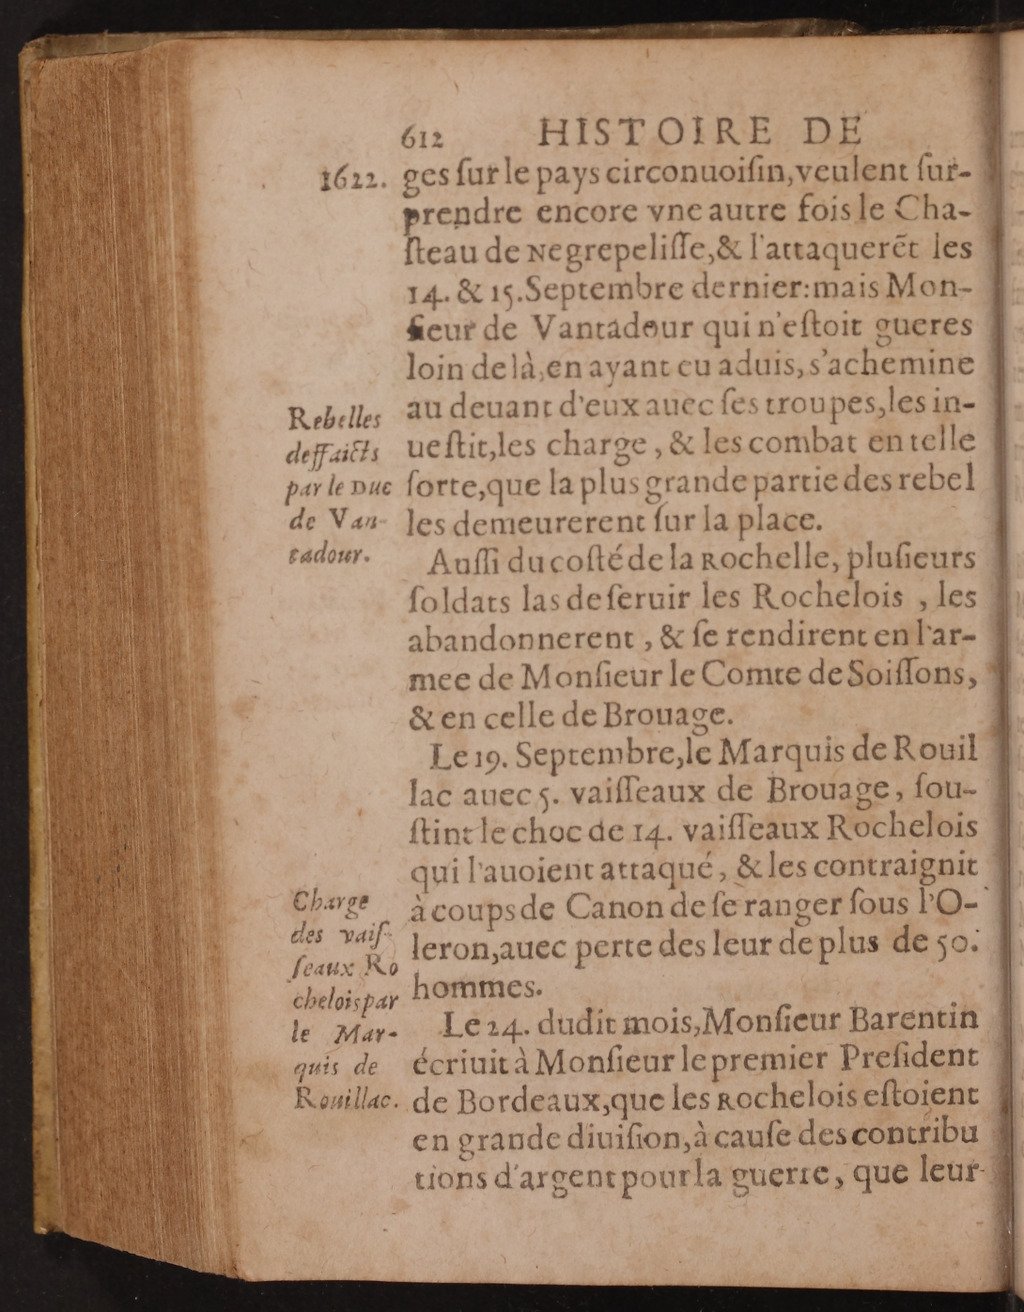 612 HISTOIRE DE
1622. ges ſur le pays circonuoiſin, veulent ſur-
prendre encore vne autre fois le Cha-
ſteau de Negrepeliſſe, & l'attaquerẽt les
14. & 15. Septembre dernier: mais Mon-
ſieur de Vantadour qui n'eſtoit gueres
loin de là, en ayant eu aduis, s'achemine
au deuant d'eux auec ſes troupes, les in-
ueſtit, les charge, & les combat en telle
ſorte, que la plus grande partie des rebel
les demeurerent ſur la place.
Rebelles
deffaicts
par le Duc
de Van-
tadour.
Auſſi du coſté de la Rochelle, pluſieurs
ſoldats las de ſeruir les Rochelois, les
abandonnerent, & ſe rendirent en l'ar-
mee de Monſieur le Comte de Soiſſons,
& en celle de Brouage.
Le 19. Septembre, le Marquis de Rouil
lac auec 5. vaiſſeaux de Brouage, ſou-
ſtint le choc de 14. vaiſſeaux Rochelois
qui l'auoient attaqué, & les contraignit
à coups de Canon de ſe ranger ſous l'O-
leron, auec perte des leur de plus de 50.
hommes.
Charge
des vaiſ-
ſeaux Ro
chelois par
le Mar-
quis de
Rouillac.
Le 24. dudit mois, Monſieur Barentin
écriuit à Monſieur le premier Preſident
de Bordeaux, que les Rochelois eſtoient
en grande diuiſion, à cauſe des contribu
tions d'argent pour la guerre, que leur